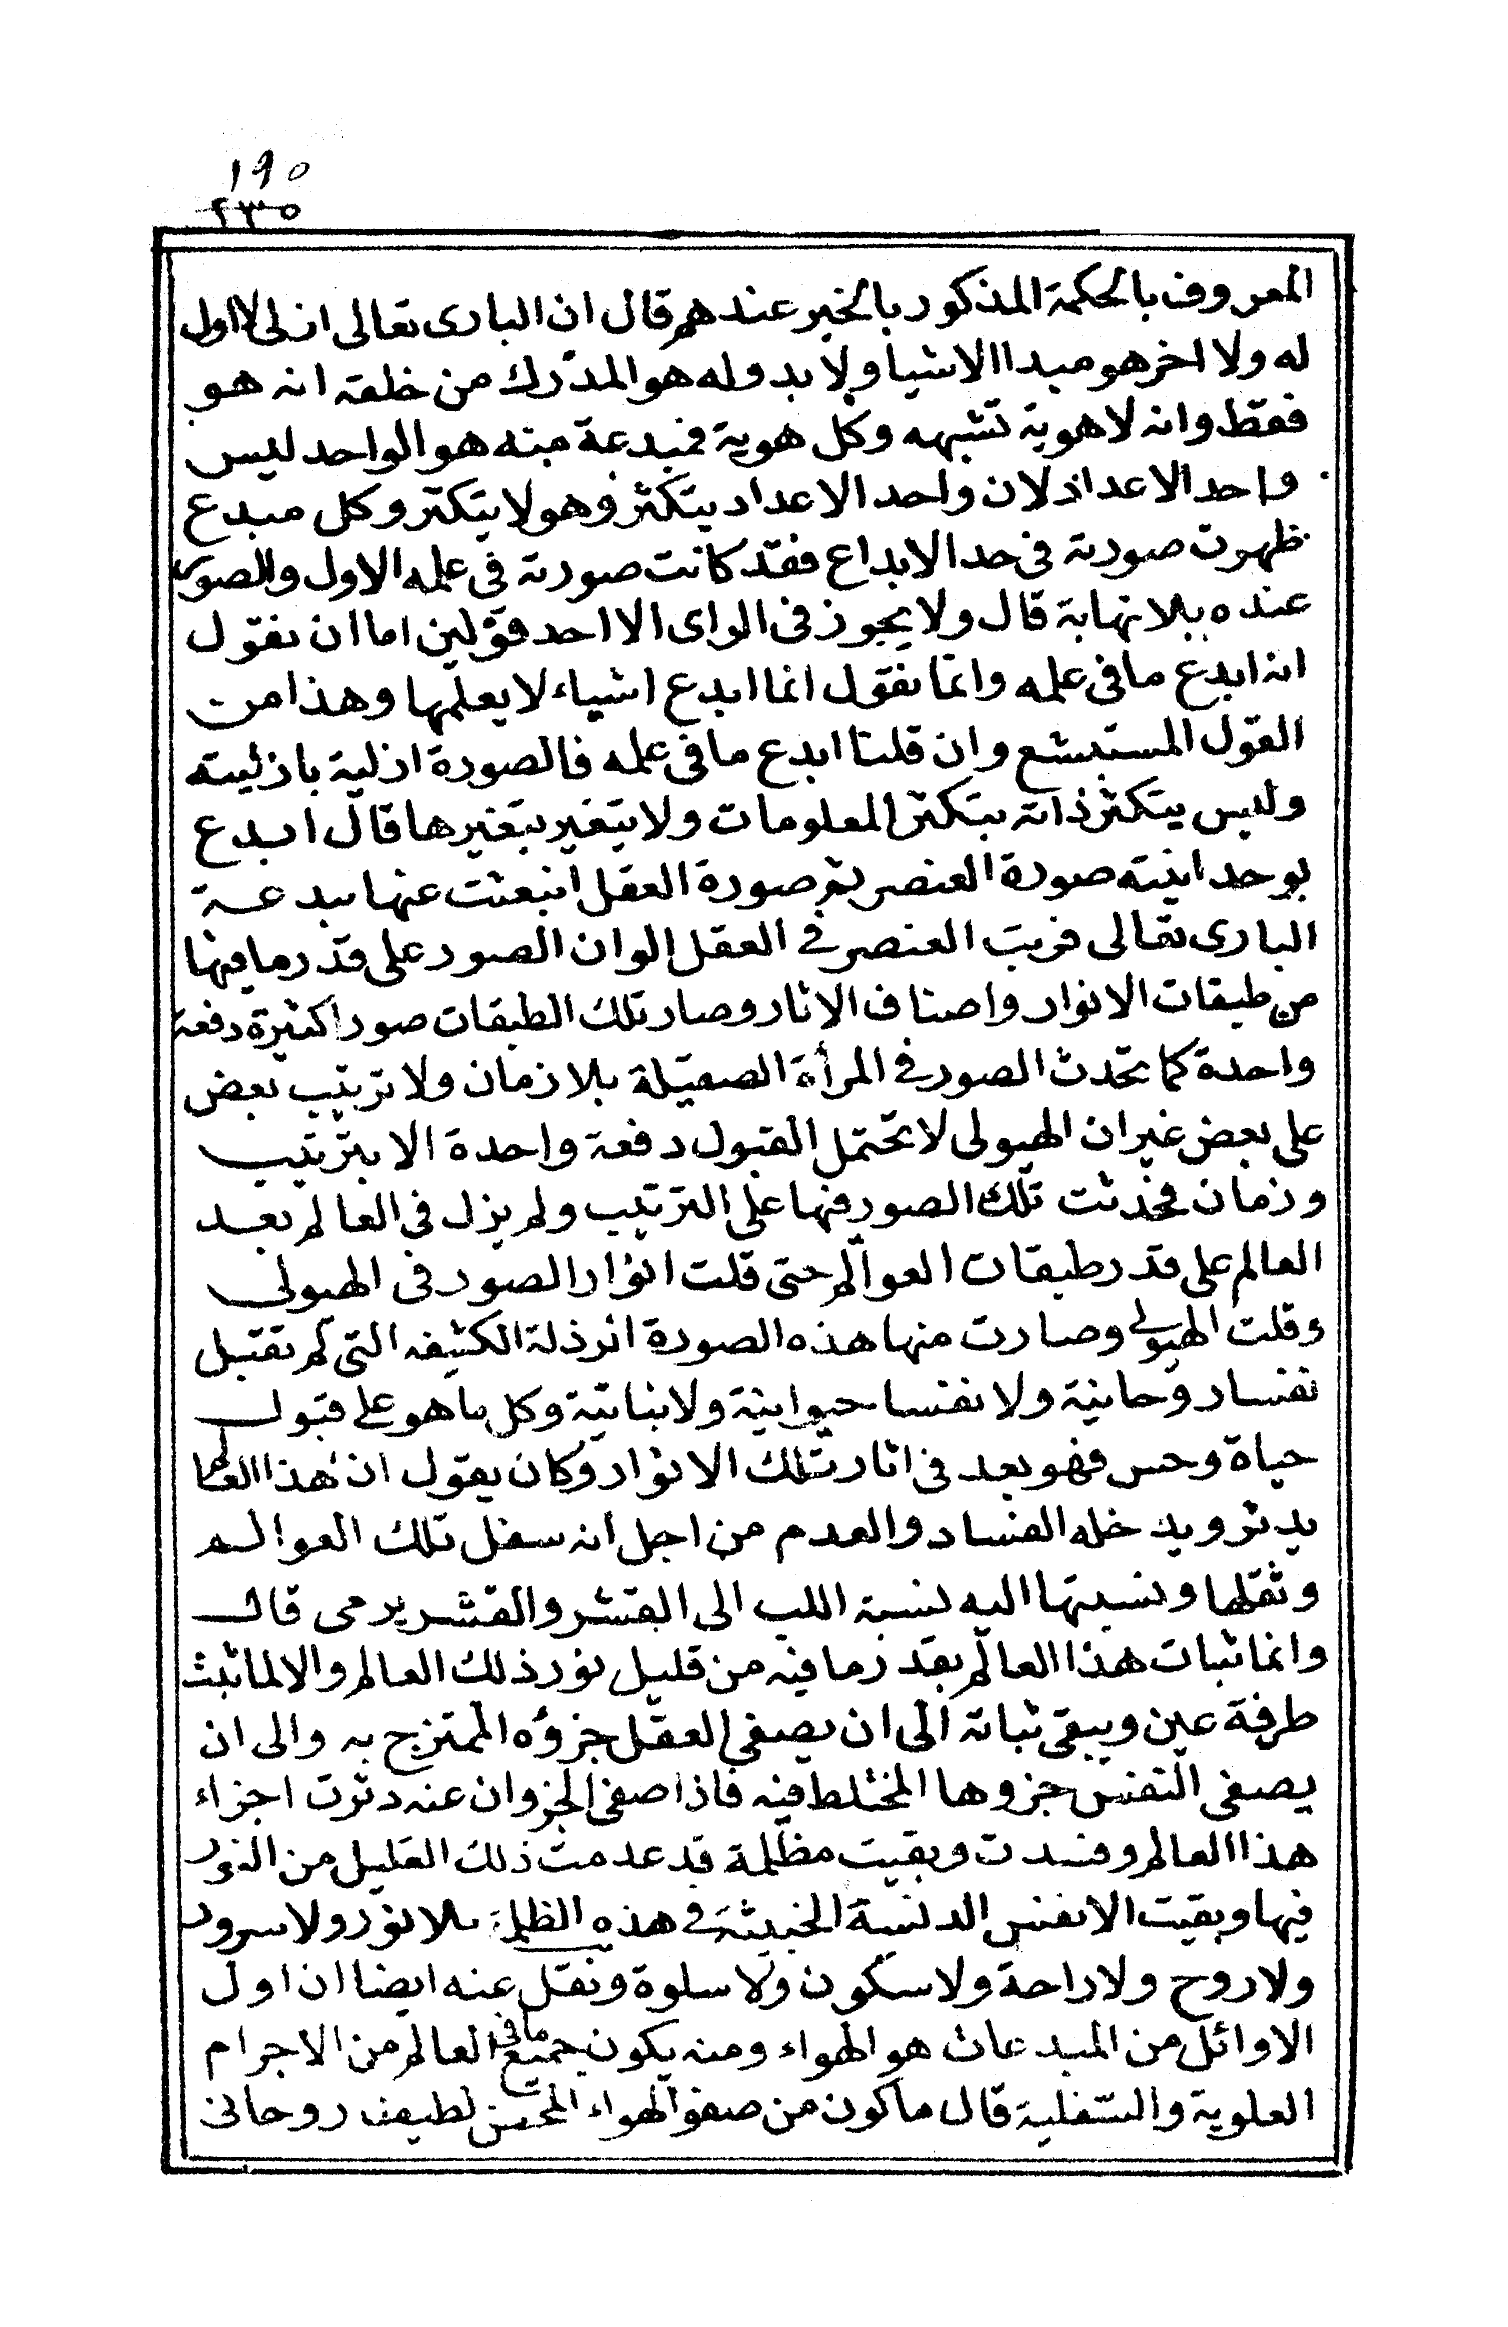 ١٩٥
٢٣٥
المعروف بالحكمة المذكور بالخير عندهم قال ان البارى تعالى ازلى لا اول
له ولا اخر هو مبدا الاشيا ولا بدو له هو المدرك من خلقه انه هو
فقط وانه لا هوية تشبهه وكل هوية فمبدعة منه هو الواحد ليس
واحد الاعداد لان واحد الاعداد يتكثر وهو لا يتكثر وكل مبدع
ظهرت صورته فى حد الابداع فقد كانت صورته فى علمه الاول والصور
عنده بلا نهاية قال ولا يجوز فى الراى الا احد قولين اما ان نقول
انه ابدع ما فى علمه وانما نقول انما ابدع اشياء لا يعلمها وهذا من
القول المستبشع وان قلنا ابدع ما فى علمه فالصورة ازلية بازليته
وليس يتكثر ذاته بتكثر المعلومات ولا يتغير بتغيرها قال ابدع
بوحدانيته صورة العنصر ثم صورة العقل انبعثت عنها ببدعة
البارى تعالى فرتب العنصر فى العقل الوان الصور على قدر ما فيها
من طبقات الانوار واصناف الاثار وصار تلك الطبقات صورا كثيرة دفعة
واحدة كما تحدث الصور فى المرأة الصقيلة بلا زمان ولا ترتيب بعض
على بعض غير ان الهيولى لا تحتمل القبول دفعة واحدة الا بترتيب
وزمان فحدثت تلك الصور فيها على الترتيب ولم يزل فى العالم بعد
العالم على قدر طبقات العوالم حتى قلت انوار الصور فى الهيولى
وقلت الهيولى وصارت منها هذه الصورة الرذلة الكثيفه التى لم تقبل
نفسا روحانية ولا نفسا حيوانية ولا نباتية وكل ما هو على قبول
حياة وحس فهو بعد فى اثار تلك الانوار وكان يقول ان هذا العالم
يدثر ويدخله الفساد والعدم من اجل انه سفل تلك العوالم
وثقلها ونسبتها اليه نسبة اللب الى القشر والقشر يرمى قال
وانما ثبات هذا العالم بقدر ما فيه من قليل نور ذلك العالم والا لما ثبت
طرفة عين ويبقى ثباته الى ان يصفى العقل جزؤه الممتزج به والى ان
يصفى النفس جزوها المختلط فيه فاذا صفى الجزوان عنه دثرت اجزاء
هذا العالم وفسدت وبقيت مظلمة قد عدمت ذلك القليل من النور
فيها وبقيت الانفس الدنسة الخبيثة فى هذه الظلمة بلا نور ولا سرور
ولا روح ولا راحة ولا سكون ولا سلوة ونقل عنه ايضا ان اول
الاوائل من المبدعات هو الهواء ومنه يكون جميع ما فى العالم من الاجرام
العلوية والسفلية قال ما كون من صفو الهواء المحض لطيف روحانى